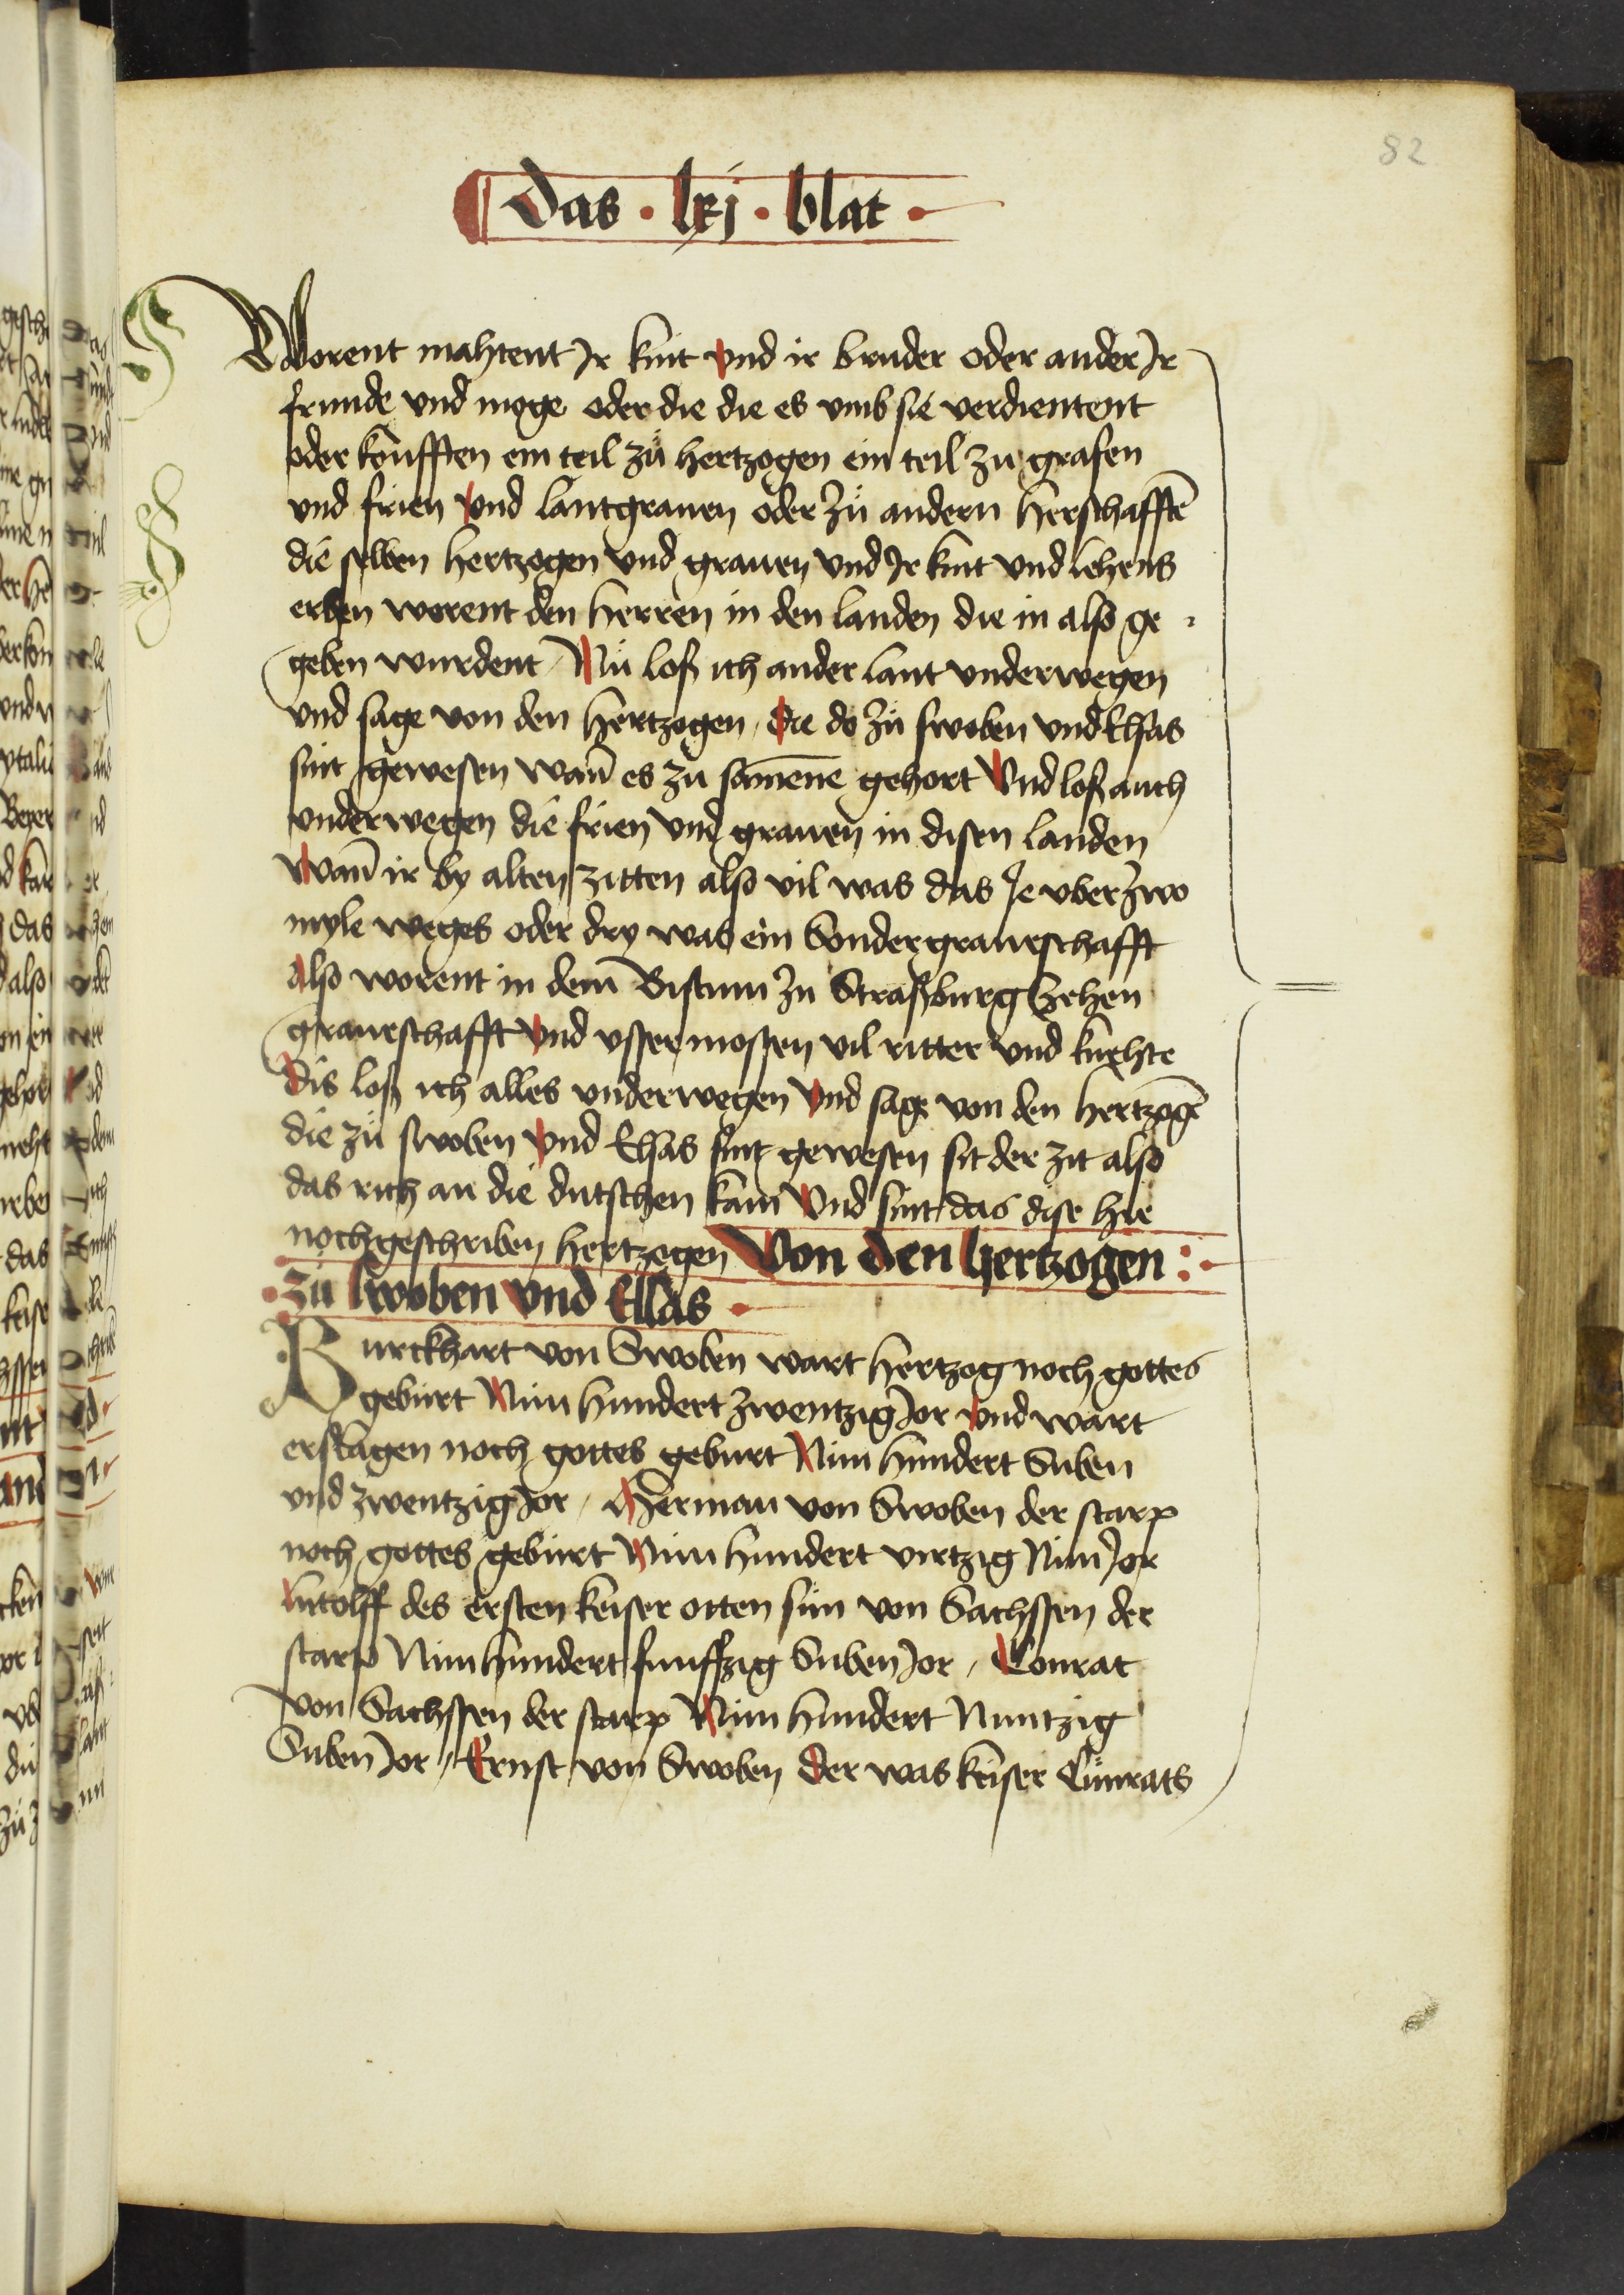 82
Das · lxj · blat ·
Worent mahtent Ir kint vnd ir bruder oder ander Ir
frunde vnd moge oder die die es vmb sie verdientent
oder koufften ein teil zů hertzogen ein teil zu grafen
vnd frien vnd lantgrauen oder zů andern herschafftē
die selben hertzogen vnd grauen vnd Ir kint vnd lehens
erben worent den herren in den landen die in also ge
geben wurdent Nů loß ich ander lant vnderwegen
vnd sage von den hertzogen die do zů swoben vnd Elsas
sint gewesen wañ es zu samēne gehort Vnd loß auch
vnderwegen die frien vnd grauen in disen landen
Wañ ir by alten zitten also vil was das Je vber zwo
myle weges oder dry was ein Sondergraueschafft
Also worent in dem Bistum zu Straßburg zehen
graueschafft vnd vssermossen vil ritter vnd knehte
Dis loß ich alles vnderwegen Vnd sage von den hertzogē
die zů swoben vnd Elsas sint gewesen sit der zit also
das rich an die dutschen kam Vnd sint das dise hie
nochgeschriben hertzogen Von den hertzogen :
· zů swoben vnd Elsas ·
Burckhart von Swoben wart hertzog noch gottes
geburt Nun hundert zwentzig Jor vnd wart
erslagen noch gottes geburt Nun hundert Suben
vnd zwentzig Jor / Herman von Swoben der starp
noch gottes geburt Nun hundert virtzig Nun Jor
Lutolff des ersten keiser otten sun von Sachssen der
starp Nun hundert funffzig Suben Jor / Conrat
von Sachssen der starp Nun hundert Nuntzig
Suben Jor / Ernst von Swoben der was keiser Cůnrats